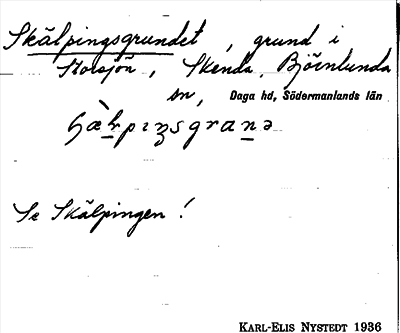 Skälpingsgrundet, grund i
Storsjön, Skenda, Björnlunda
sn, Daga hd, Södermanlands län
Se Skälpingen!
KARL-ELIS NYSTEDT 1936